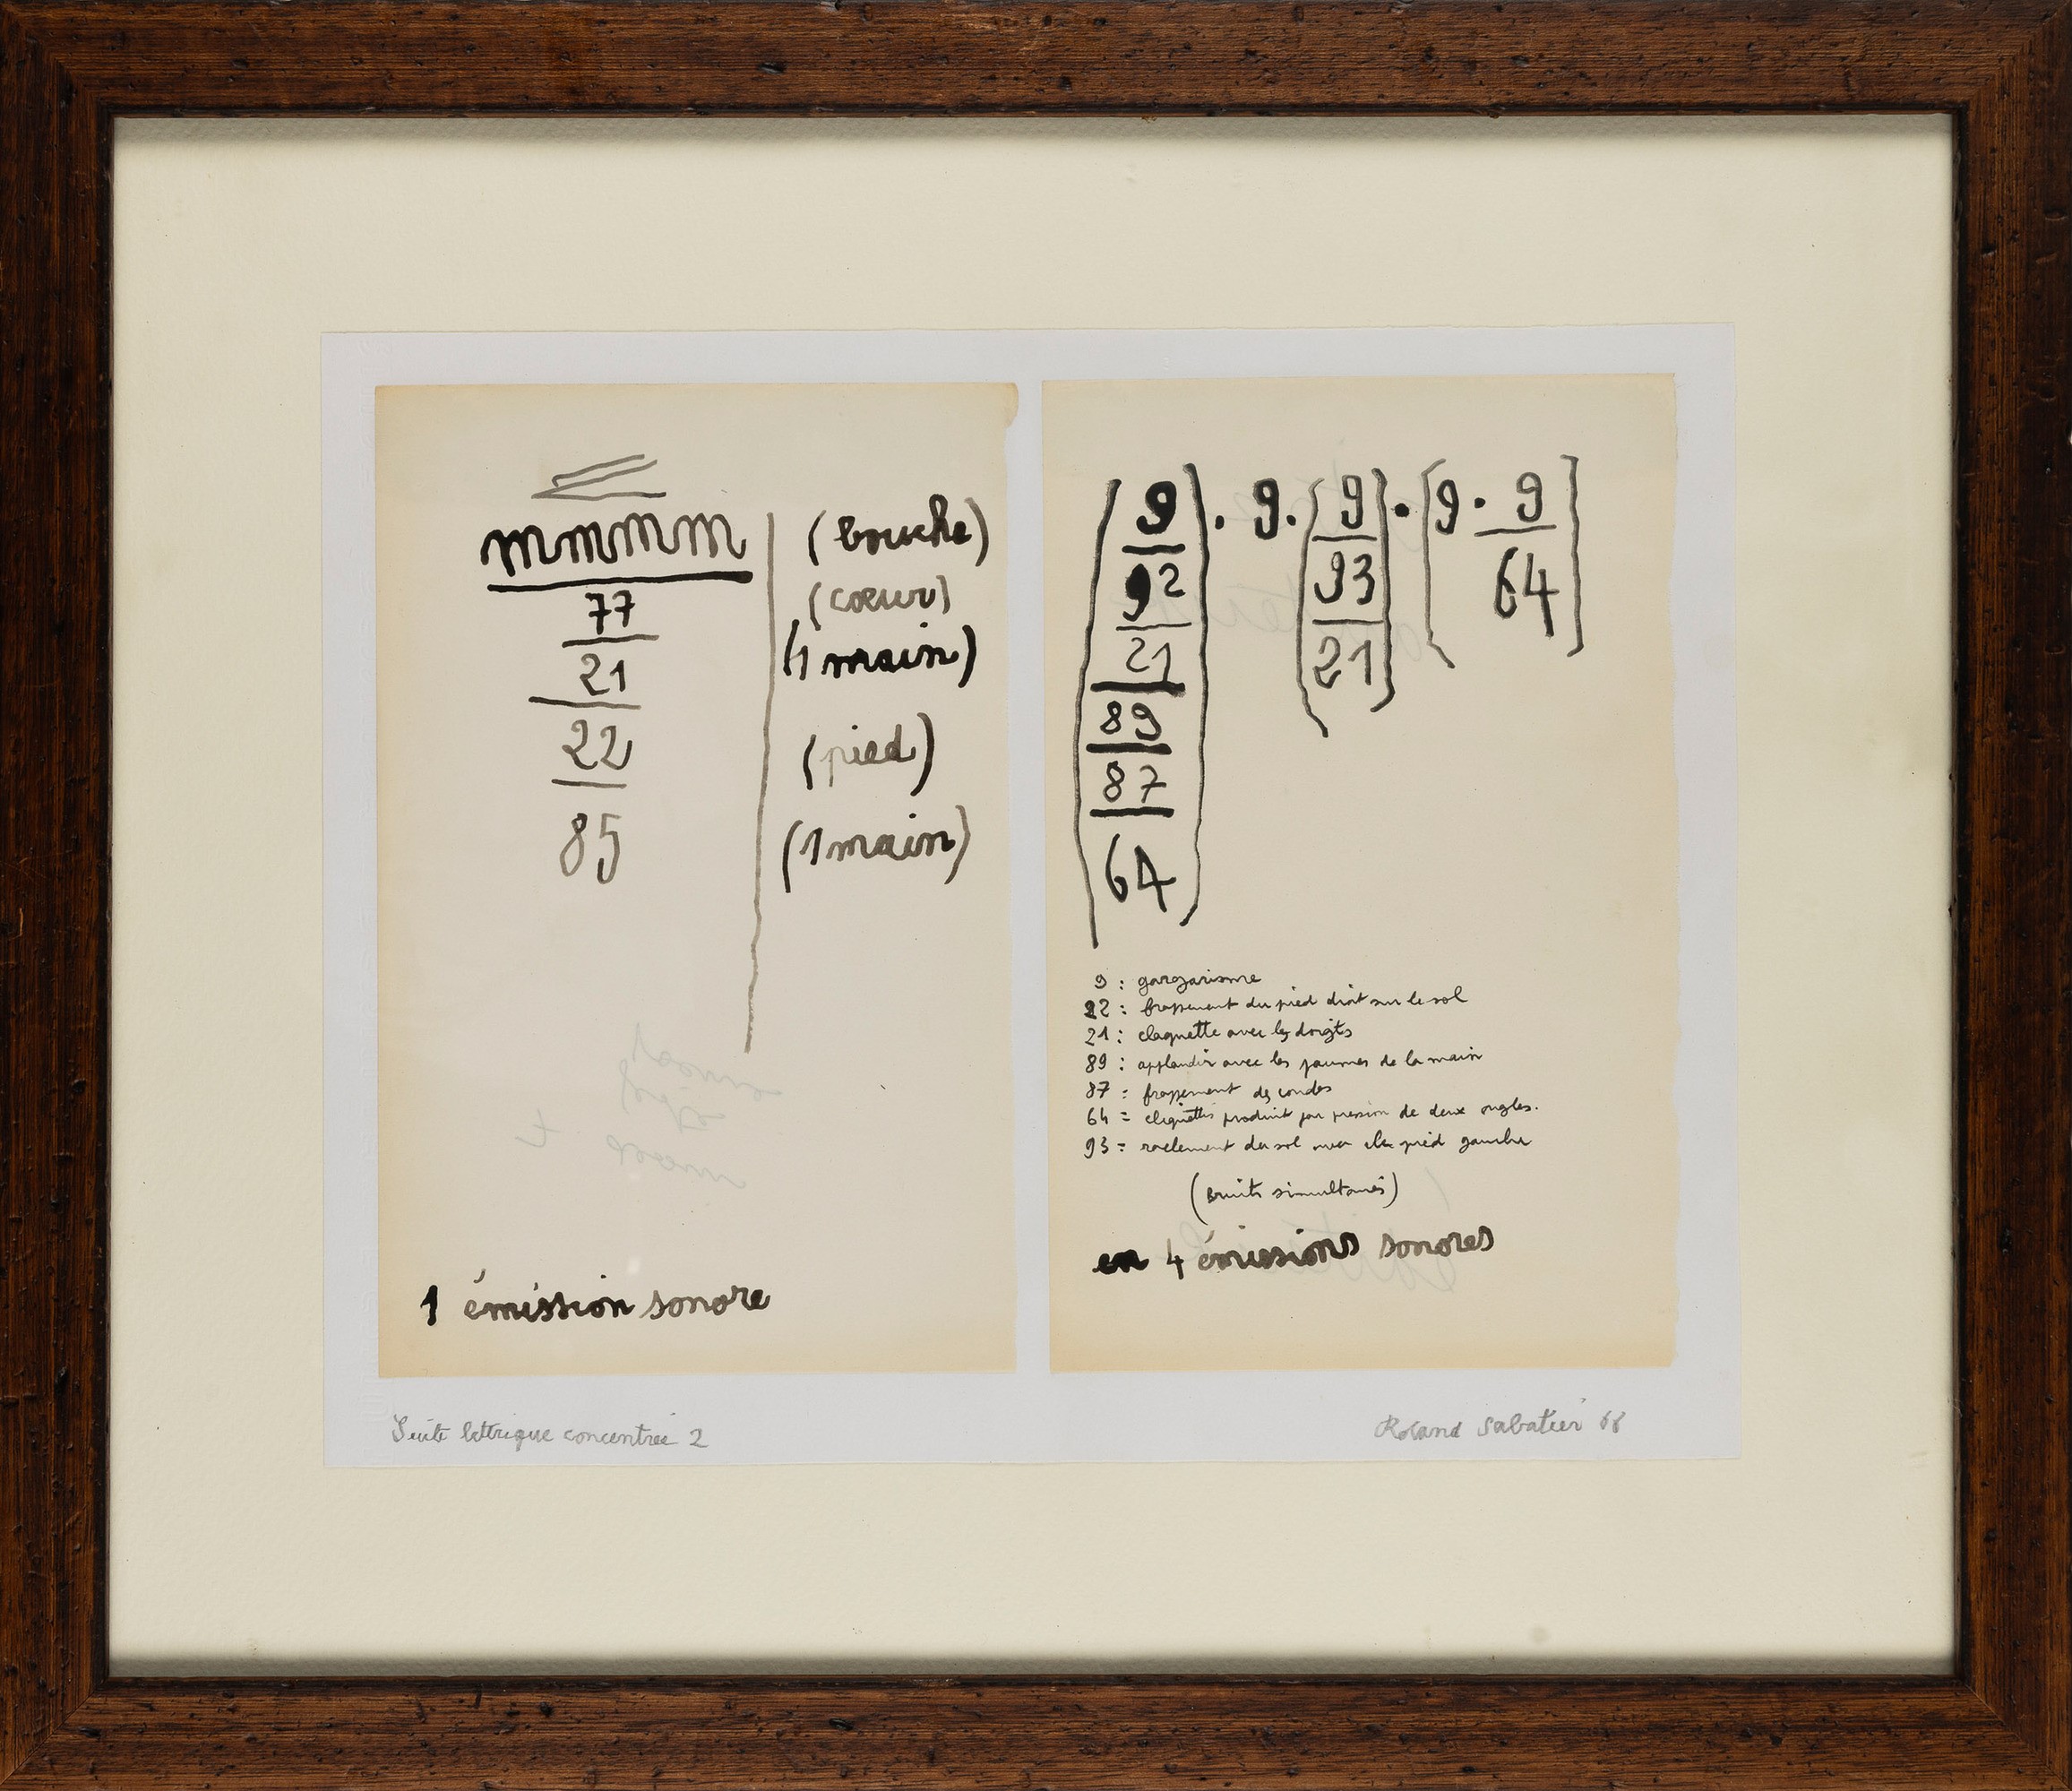 mmmm (bouche)
77 (cœur)
21 (1 main)
22 (pied)
85 (1 main)
1 émission sonore
9 . 9 . 9 . 9 . 9
92 93 64
21 21
89
87
64
9 : gargarisme
22 : frapement du pied droit sur le sol
21 : claquette avec les doigts
89 : applaudir avec les paumes de la main
87 = frapement des coudes
64 = cliquettis produit par pression de deux ongles.
93 = raclement du sol avec le pied gauche
(Bruits simultanés)
en 4 émissions sonores
Suite lettrique concentrée 2
Roland Sabatier 66